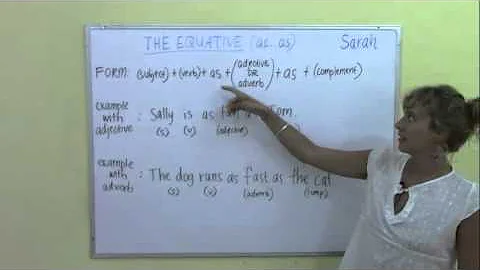 THE EQUATIVE (as..as) Sarah
FORM: (subject) + (verb) + as + (adjective OR adverb) + as + (complement)
example with adjective : Sally is as Tom.
(s) (v) (adjective)
example with adverb : The dog runs as fast as the cat
(s) (v) (adverb) (comp)